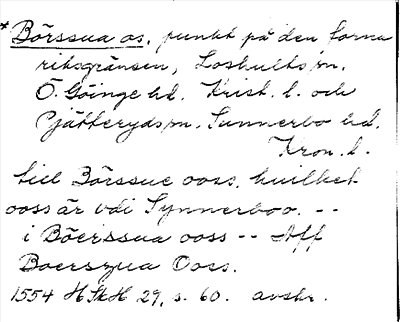 * Börssua os, punkt på den forna
riksgränsen, Loshults sn.
Ö. Göinge hd. Krist. l. och
Pjätteryds sn. Sunnerbo hd.
Kron. l.
till Börssue ooss, huilket
ooss är vdi Synnerboo. --
i Böerssua ooss -- Aff
Boerszua Ooss.
1554 HSkH 29, s. 60. avskr.